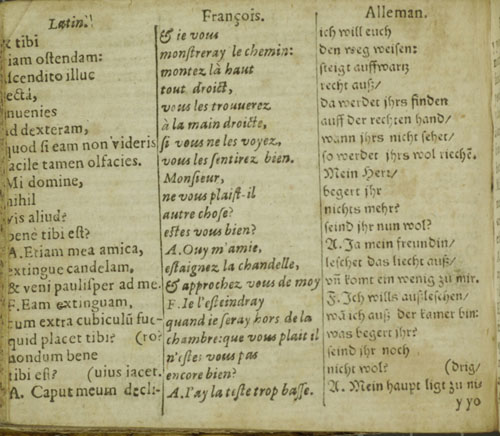 Latin.
& tibi
iam oſtendam:
ſcendito illuc
ectá,
nuenies
d dexteram,
quod ſi eam non videris
acile tamen olfacies.
Mi domine,
nihil
vis aliud?
bene tibi eſt?
A. Etiam mea amica,
extingue candelam,
& veni pauliſper ad me.
F. Eam extinguam,
cum extra cubiculū fue-
quid placet tibi? (ro?
nondum bene
tibi eſt? (uius iacet.
A. Caput meum decli-
François.
& ie vous
monſtreray le chemin:
montez là haut
tout droict,
vous les trouuerez
à la main droicte,
ſi vous ne les voyez,
vous les ſentirez bien.
Monſieur,
ne vous plaiſt-il
autre choſe?
eſtes vous bien?
A. Ouy m'amie,
eſtaignez la chandelle,
& approchez vous de moy
F. Ie l'eſteindray
quand ie ſeray hors de la
chambre: que vous plait il
n'eſtes vous pas
encore bien?
A. I'ay la teſte trop baſſe.
Alleman.
ich will euch
den weg weiſen:
ſteigt auffwartz
recht auß/
da werdet jhrs finden
auff der rechten hand/
wann jhrs nicht ſehet/
ſo werdet jhrs wol riechē.
Mein Herr/
begert jhr
nichts mehr?
ſeind jhr nun wol?
A. Ja mein freundin/
leſchet das liecht auß/
vñ komt ein wenig zu mir.
F. Ich wills außleſchen/
wā ich auß der kamer bin:
was begert jhr?
ſeind jhr noch
nicht wol? (drig/
A. Mein haupt ligt zu ni-
yyo